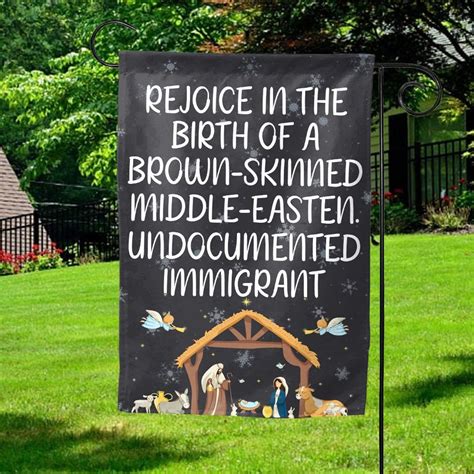 REJOICE IN THE
BIRTH OF A
BROWN-SKINNED
MIDDLE-EASTEN.
UNDOCUMENTED
IMMIGRANT